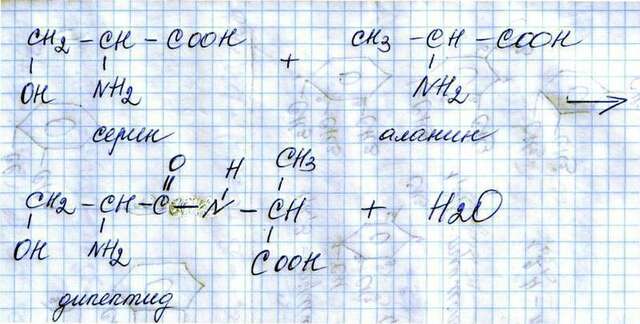 CH2 – CH – COOH + CH3 – CH – COOH
OH NH2 NH2
серин аланин →
O H CH3
CH2 – CH – C – N – CH + H2O
OH NH2 COOH
дипептид